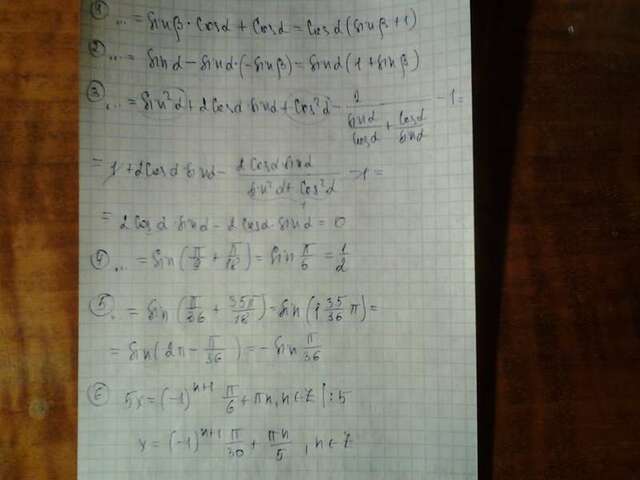 ① ... = sinβ·cosα + cosα = cosα(sinβ+1)
② ... = sinα − sinα·(−sinβ) = sinα(1+sinβ)
③ ... = sin²α + 2cosα sinα + cos²α − 2/(sinα/cosα + cosα/sinα) − 1 =
= 1 + 2cosα sinα − 2cosα sinα/(sin²α + cos²α) − 1 =
1
= 2cosα·sinα − 2cosα·sinα = 0
④ ... = sin(π/9 + π/18) = sin π/6 = 1/2
⑤ .. = sin(π/36 + 35π/18) = sin(1 35/36 π) =
= sin(2π − π/36) = − sin π/36
⑥ 5x = (−1)ⁿ⁺¹ π/6 + πn, n∈Z |:5
x = (−1)ⁿ⁺¹ π/30 + πn/5, n∈Z